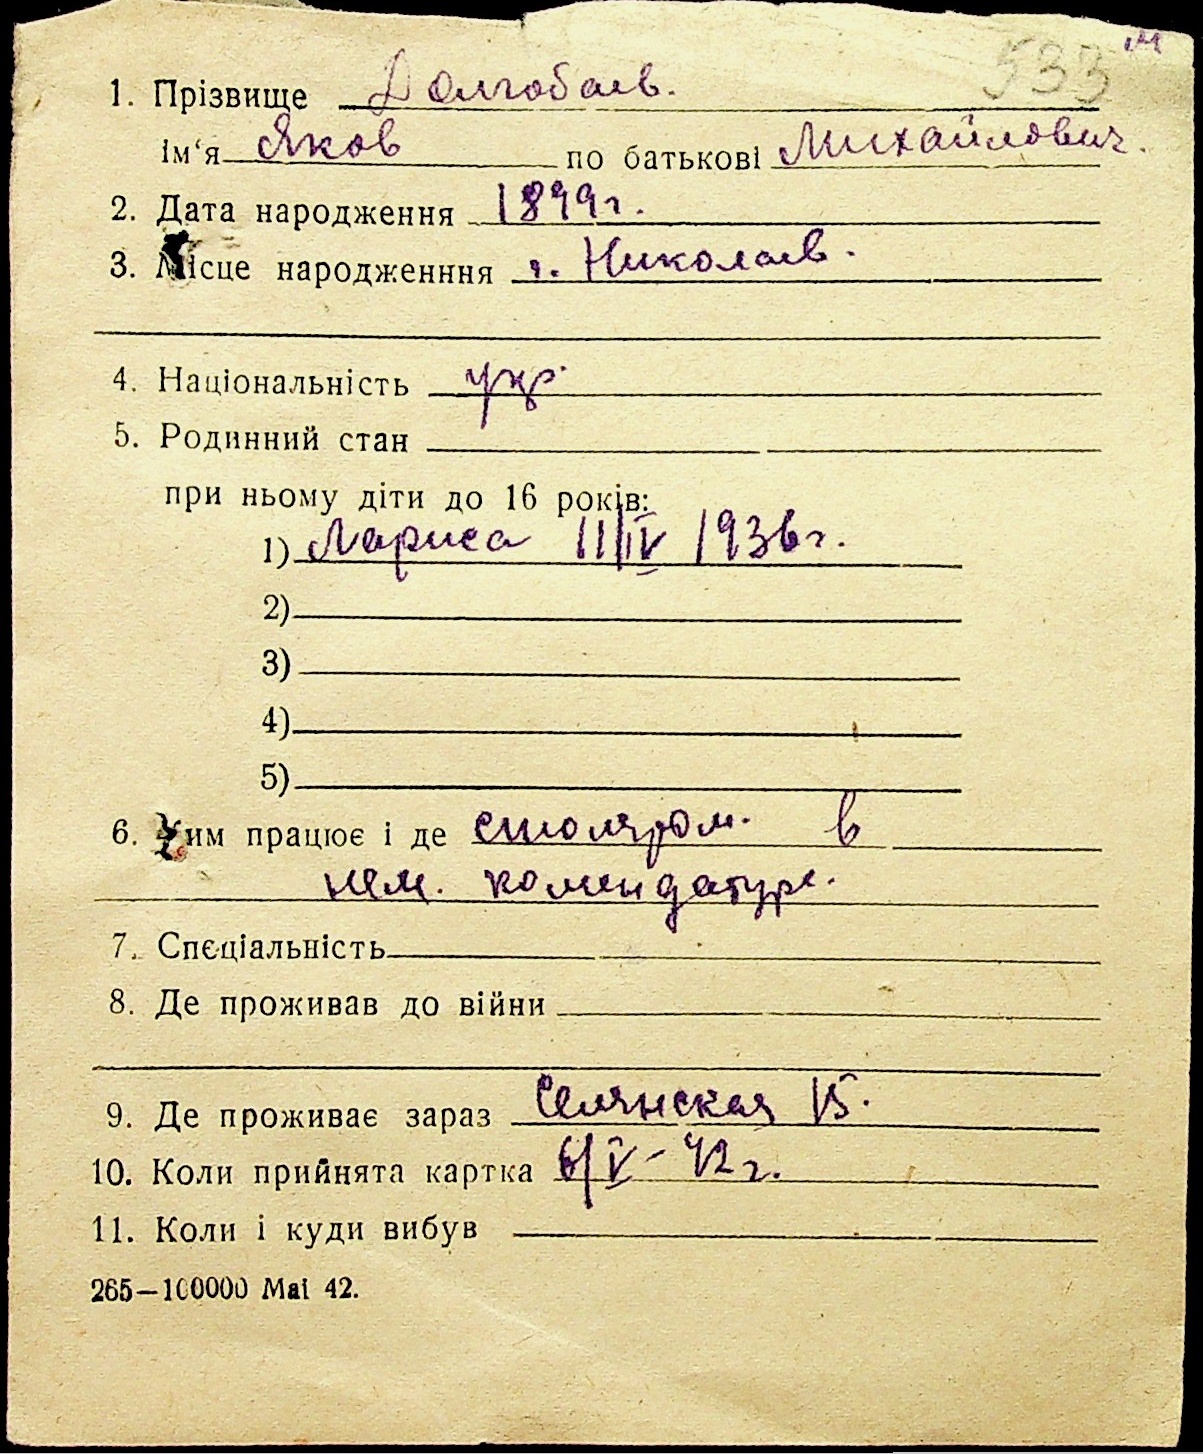 533 м
1. Прізвище Долгобаев.
ім‘я Яков по батькові Михайлович.
2. Дата народження 1899г.
3. Місце народженння г. Николаев.
4. Національність укр.
5. Родинний стан
при ньому діти до 16 років:
1) Лариса 11/IV 1936г.
2)
3)
4)
5)
6. Ким працює і де столяром. в
нем. комендатуре.
7. Спєціальність
8. Де проживав до війни
9. Де проживає зараз Селянская 15.
10. Коли прийнята картка 6/V-42г.
11. Коли і куди вибув
265—100000 Mai 42.